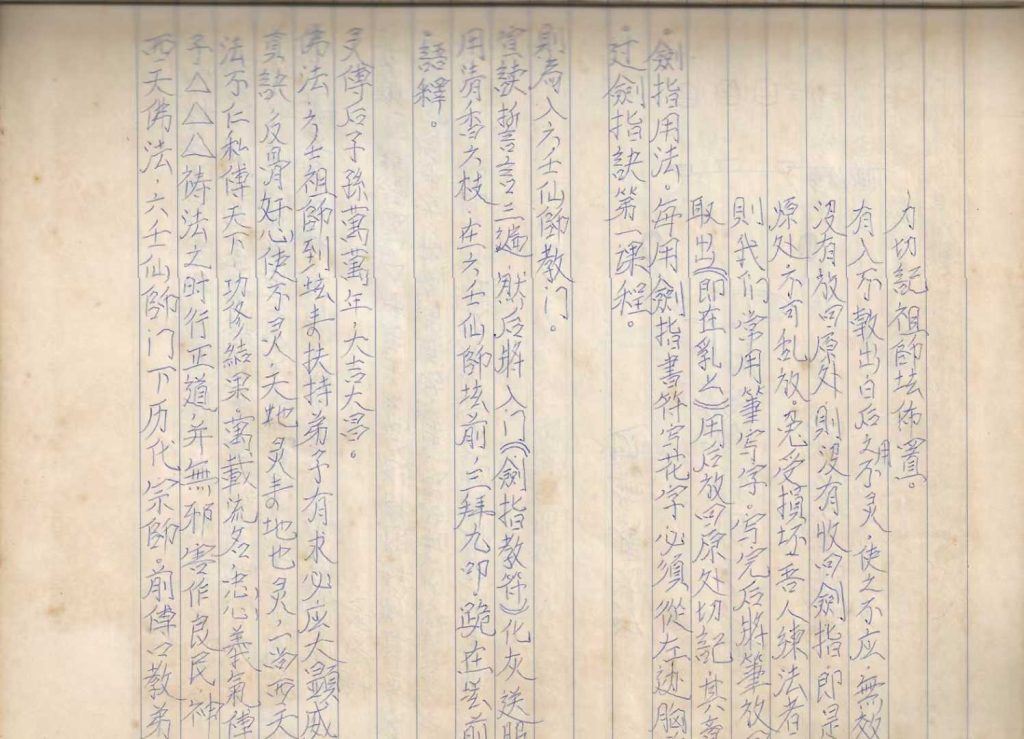 力切記祖師坛佈置。
有入不敕出白后用之不灵，使之不应，無效
没有放回原处，則没有收回劍指即是
原处不可乱放，免受損坏，吾人練法者
則我们常用筆写字。写完后將筆放
取出《即在乳上》用后放回原处切記，其意
．劍指用法。每用劍指書符写花字必須從左边胸
．过劍指訣第一課程。
則為入六壬仙師教门。
宣读誓言三遍，然后將入门《劍指教符》化灰送服
用清香六枝，在六壬仙師坛前，三拜九叩，跪在坛前
．語釋。
灵傳后子孫萬萬年，大吉大昌。
佛法，六壬祖師到坛前扶持弟子有求必应大顯威
真訣，反骨奸心使不灵，天地灵 地也灵，一尚西天
法不仁私傳天下，功修結果，萬載流名，忠心義氣傳
子△△△祷法之时行正道，并無邪害作良民，神
西天佛法，六壬仙師门下历代宗師，前傳口教弟